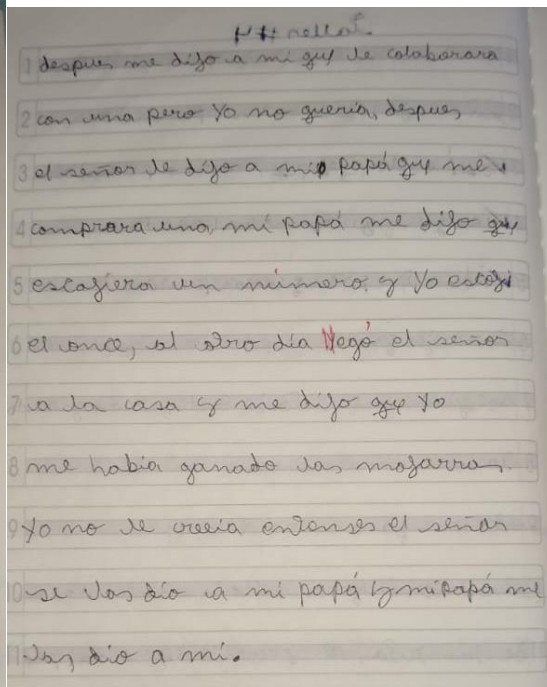 1 despues me dijo a mi que le colaborara
2 con una pero yo no queria, despues,
3 el señor le dijo a mi papá que me
4 comprara una, mi papá me dijo que
5 escogiera un número, y yo escogi
6 el once, al otro día llegó el señor
7 a la casa y me dijo que yo
8 me habia ganado las mojarras.
9 yo no le creeia entonses el señor
10 se las dio a mi papá y mi papá me
11 las dio a mí.